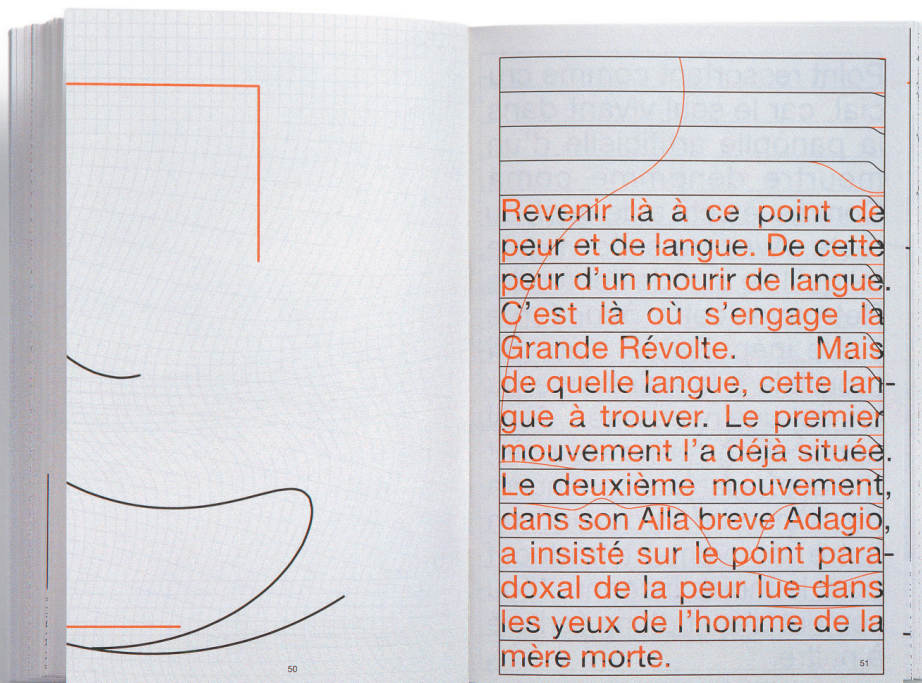 50
Revenir là à ce point de
peur et de langue. De cette
peur d’un mourir de langue.
C’est là où s’engage la
Grande Révolte. Mais
de quelle langue, cette lan-
gue à trouver. Le premier
mouvement l’a déjà située.
Le deuxième mouvement,
dans son Alla breve Adagio,
a insisté sur le point para-
doxal de la peur lue dans
les yeux de l’homme de la
mère morte.
51